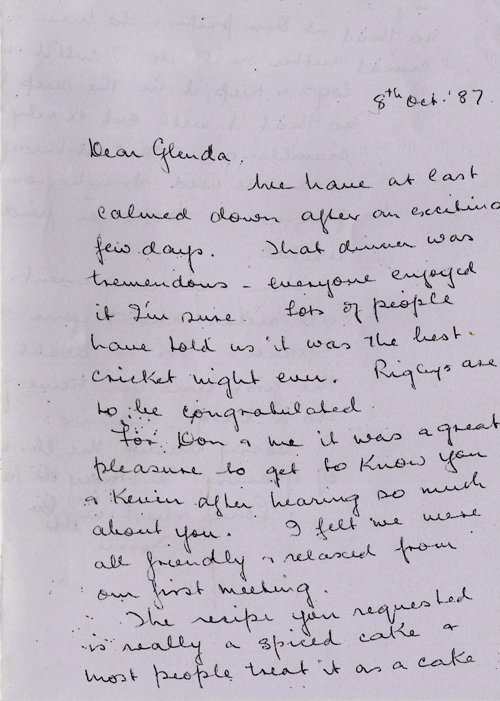 8th Oct. '87.
Dear Glenda,
We have at last
calmed down after an exciting
few days. That dinner was
tremendous - everyone enjoyed
it I'm sure. Lots of people
have told us it was the best
cricket night ever. Rigbys are
to be congratulated.
For Don & me it was a great
pleasure to get to know you
& Kevin after hearing so much
about you. I felt we were
all friendly & relaxed from
our first meeting.
The recipe you requested
is really a spiced cake &
most people treat it as a cake